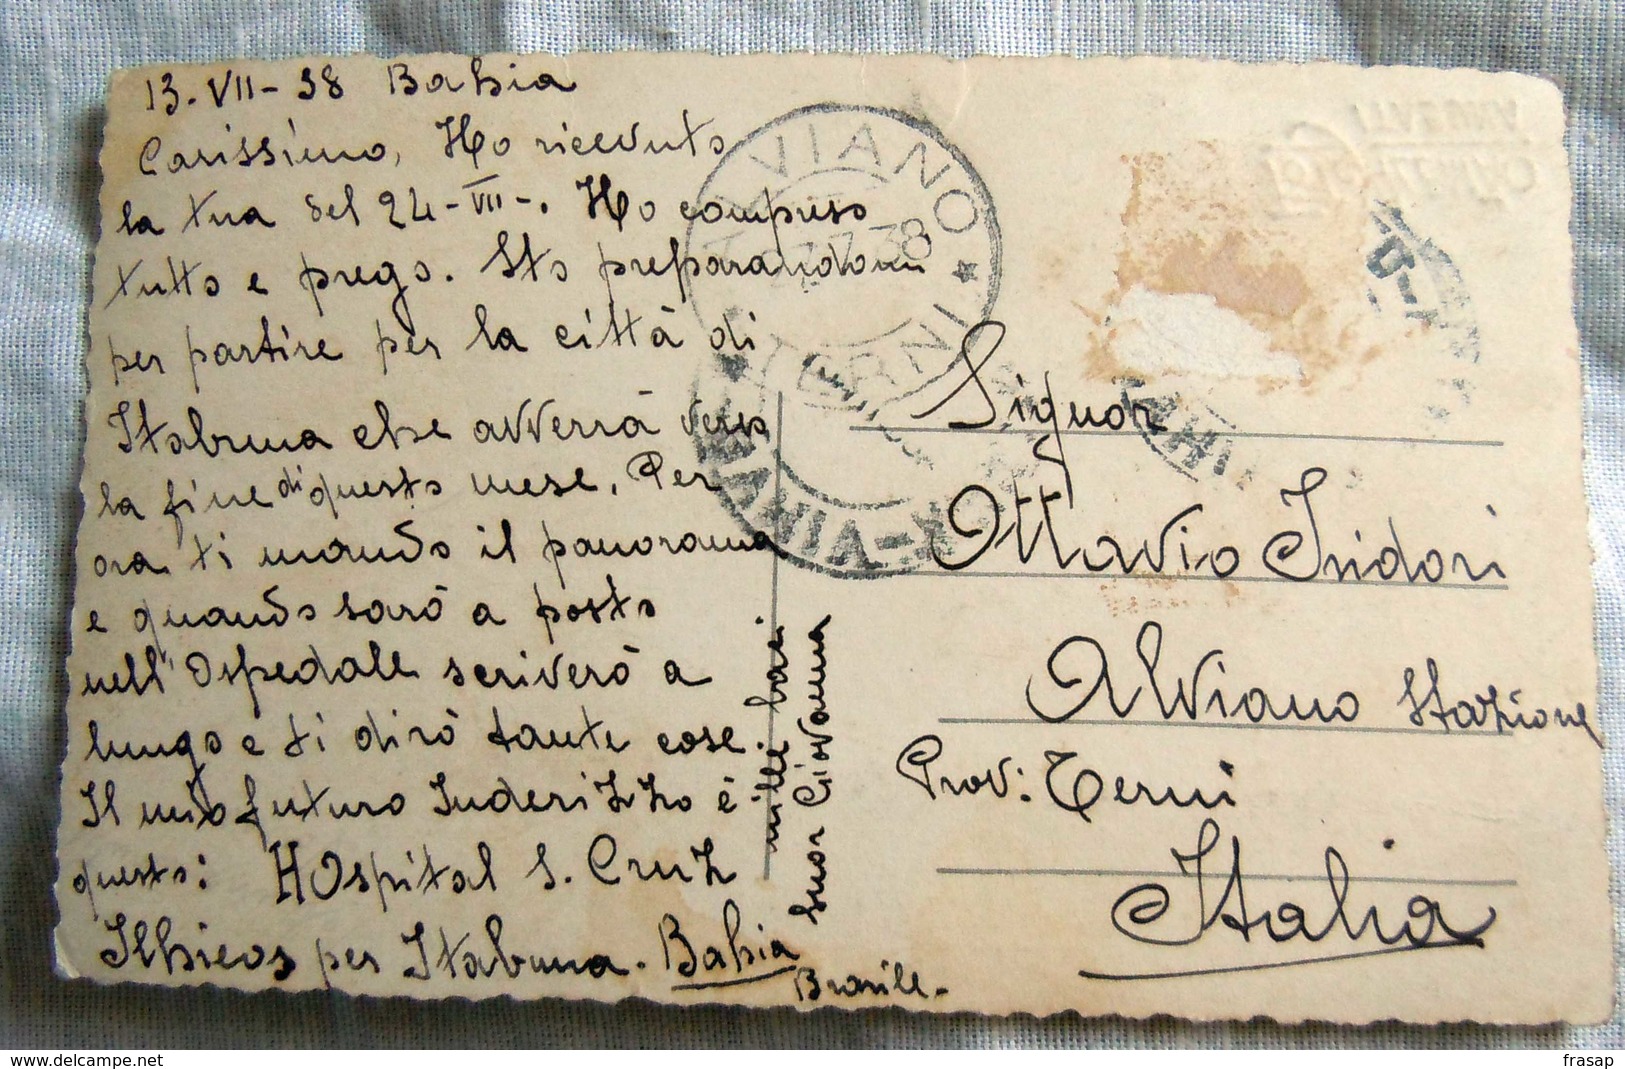 13. VII - 38 Bahia
Carissimo, Ho ricevuto
la tua del 24-VII-. Ho compreso
tutto e prego. Sto preparandomi
per partire per la città di
Itabuna che avverrà verso
la fine di questo mese. Per
ora ti mando il panorama
e quando sarò a posto
nell'Ospedale scriverò a
lungo e ti dirò tante cose.
Il mio futuro Inderizzo è
questo: HOspital S. Cruz
Ilhieos per Itabuna. Bahia
Brasile -
mille baci
Suor Giovanna
ALVIANO
TERNI
38
Signor
Ottavio Isidori
Alviano Stazione
Prov: Terni
Italia
www.delcampe.net
frasap